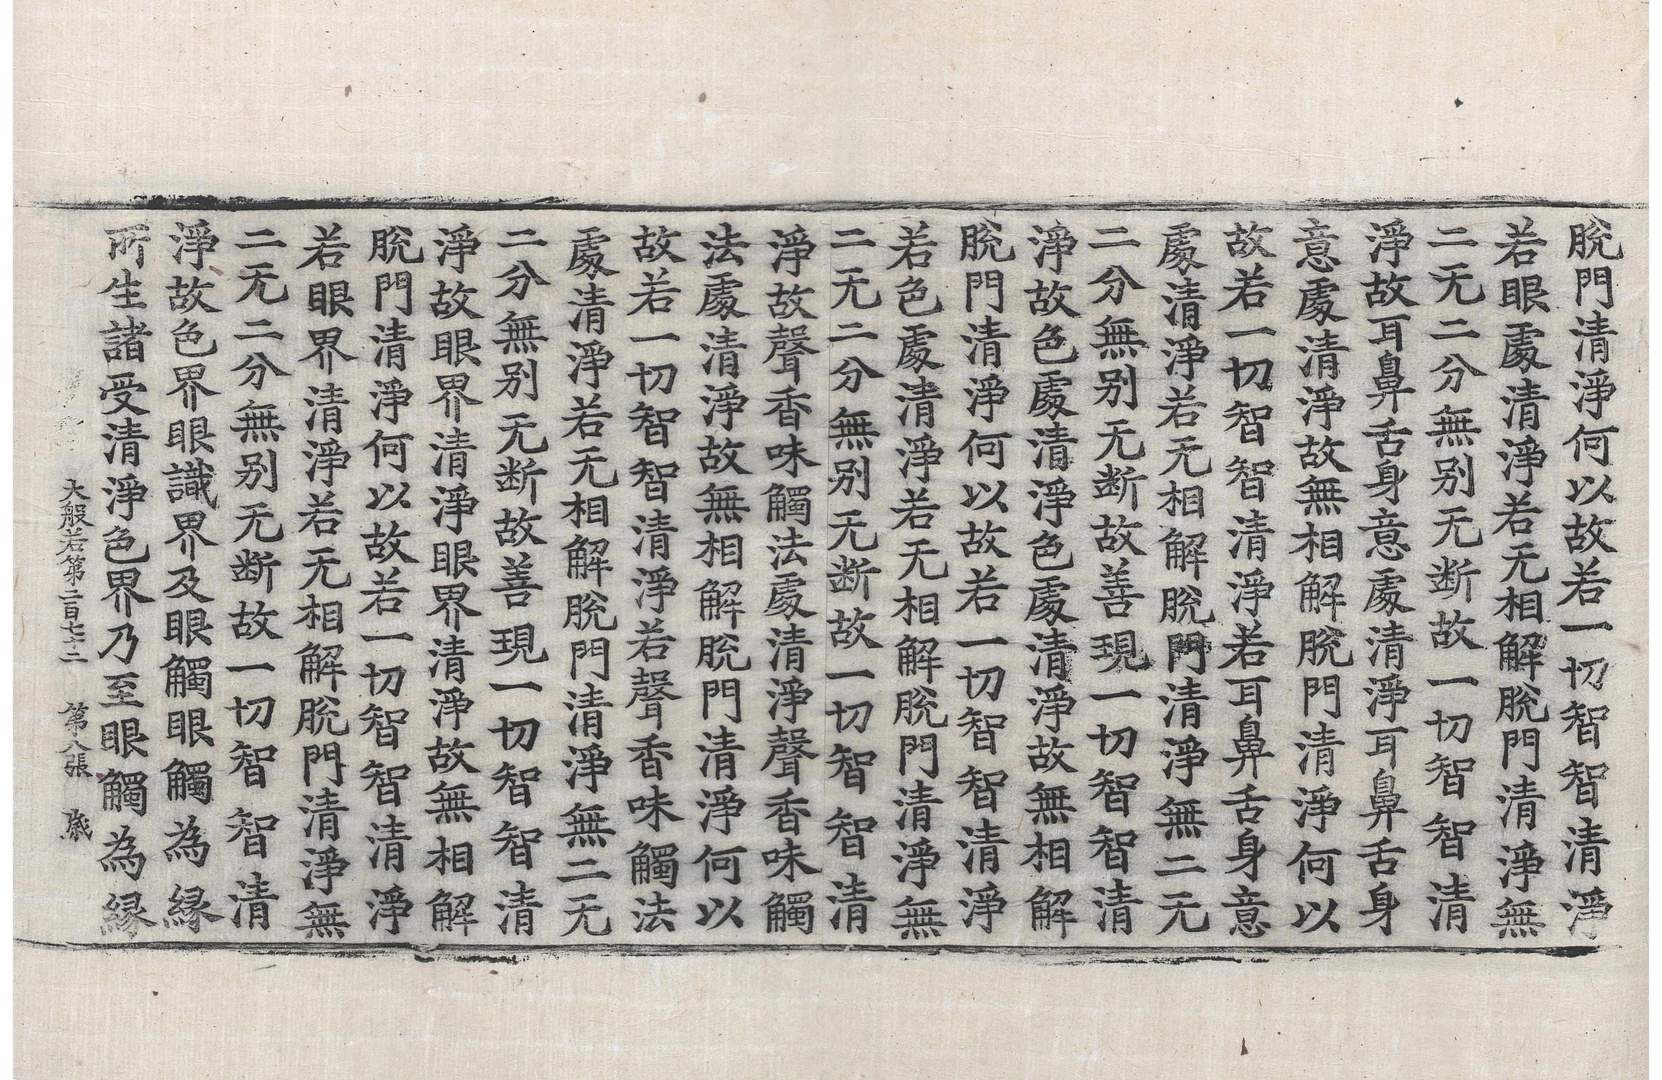 脫門清淨何以故若一切智智清淨
若眼處清淨若无相解脫門清淨無
二无二分無别无断故一切智智清
淨故耳鼻舌身意處清淨耳鼻舌身
意處清淨故無相解脫門清淨何以
故若一切智智清淨若耳鼻舌身意
處清淨若无相解脫門清淨無二无
二分無别无断故善現一切智智清
淨故色處清淨色處清淨故無相解
脫門清淨何以故若一切智智清淨
若色處清淨若无相解脫門清淨無
二无二分無别无断故一切智智清
淨故聲香味觸法處清淨聲香味觸
法處清淨故無相解脫門清淨何以
故若一切智智清淨若聲香味觸法
處清淨若无相解脫門清淨無二无
二分無别无断故善現一切智智清
淨故眼界清淨眼界清淨故無相解
脫門清淨何以故若一切智智清淨
若眼界清淨若无相解脫門清淨無
二无二分無别无断故一切智智清
淨故色界眼識界及眼觸眼觸為緣
所生諸受清淨色界乃至眼觸為緣
大般若第二百七二 第八張 歲